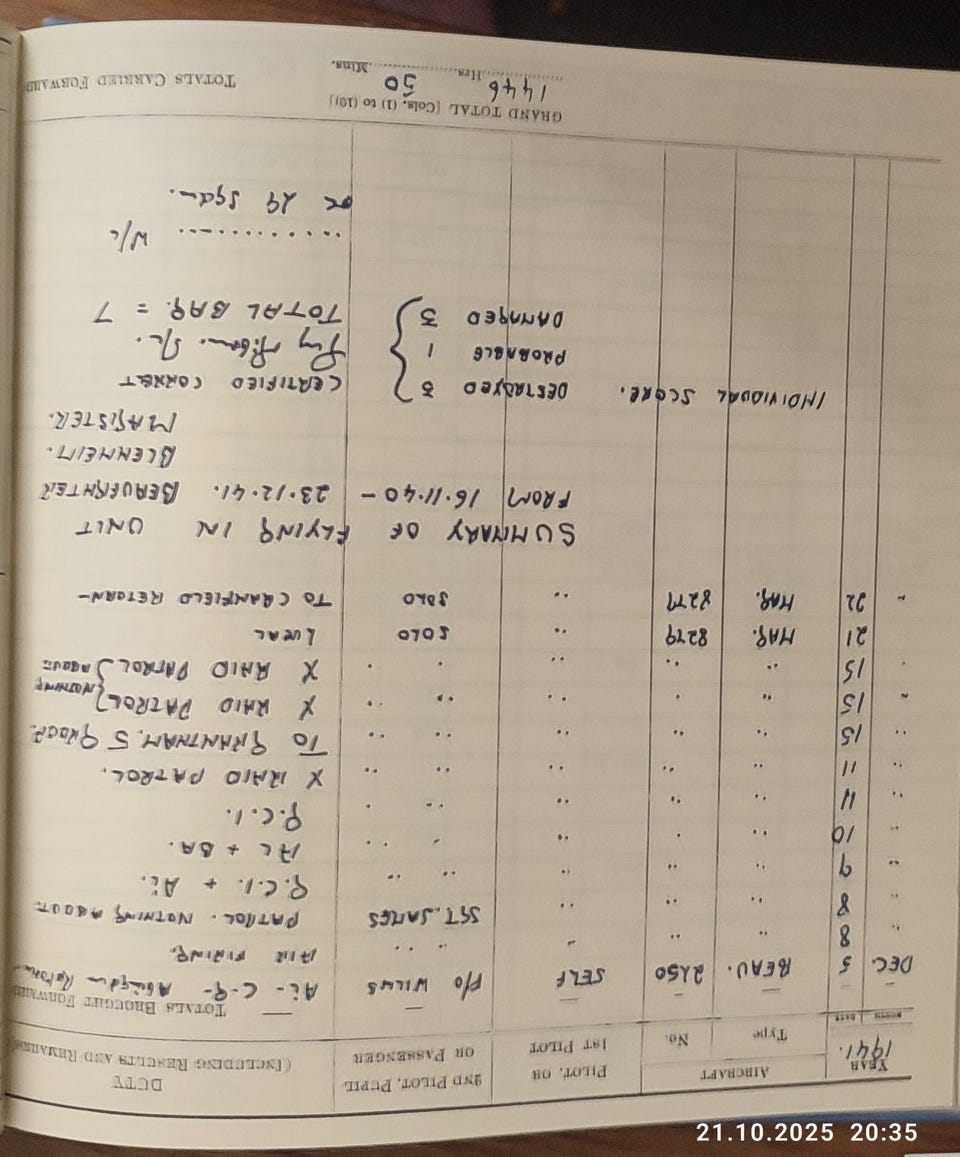 YEAR AIRCRAFT PILOT, OR 2ND PILOT, PUPIL DUTY
1941. Type No. 1ST PILOT OR PASSENGER (INCLUDING RESULTS AND REMARKS)
MONTH DATE
— — — — — — — TOTALS BROUGHT FORWARD
DEC. 5 BEAU. 2150 SELF P/O WILLIS Ai - C-G- Abingdon Return
" 8 " " " " " AIR FIRING.
" 8 " " " SGT. JAMES PATROL. NOTHING ABOUT.
" 9 " " " " " G.C.I. + Ai.
" 10 " " " " " AC + BA.
" 11 " " " " " G.C.I.
" 11 " " " " " X RAID PATROL.
" 15 " " " " " TO GRANTHAM. 5 GROUP.
" 15 " " " " " X RAID PATROL } NOTHING
" 15 " " " " " X RAID PATROL } ABOUT
21 MAG. 8279 " SOLO LOCAL
" 22 MAG. 8279 " SOLO TO CRANFIELD RETURN-
SUMMARY OF FLYING IN UNIT
FROM 16.11.40 - 23.12.41. BEAUFIGHTER
BLENHEIM.
MAGISTER.
INDIVIDUAL SCORE. DESTROYED 3 } CERTIFIED CORRECT
PROBABLE 1 } S/L.
DAMAGED 3 } TOTAL BAG. = 7
............ W/C
OC 29 Sqdn.
GRAND TOTAL [Cols. (1) to (10)]
1446 Hrs. 50 Mins. TOTALS CARRIED FORWARD
21.10.2025 20:35